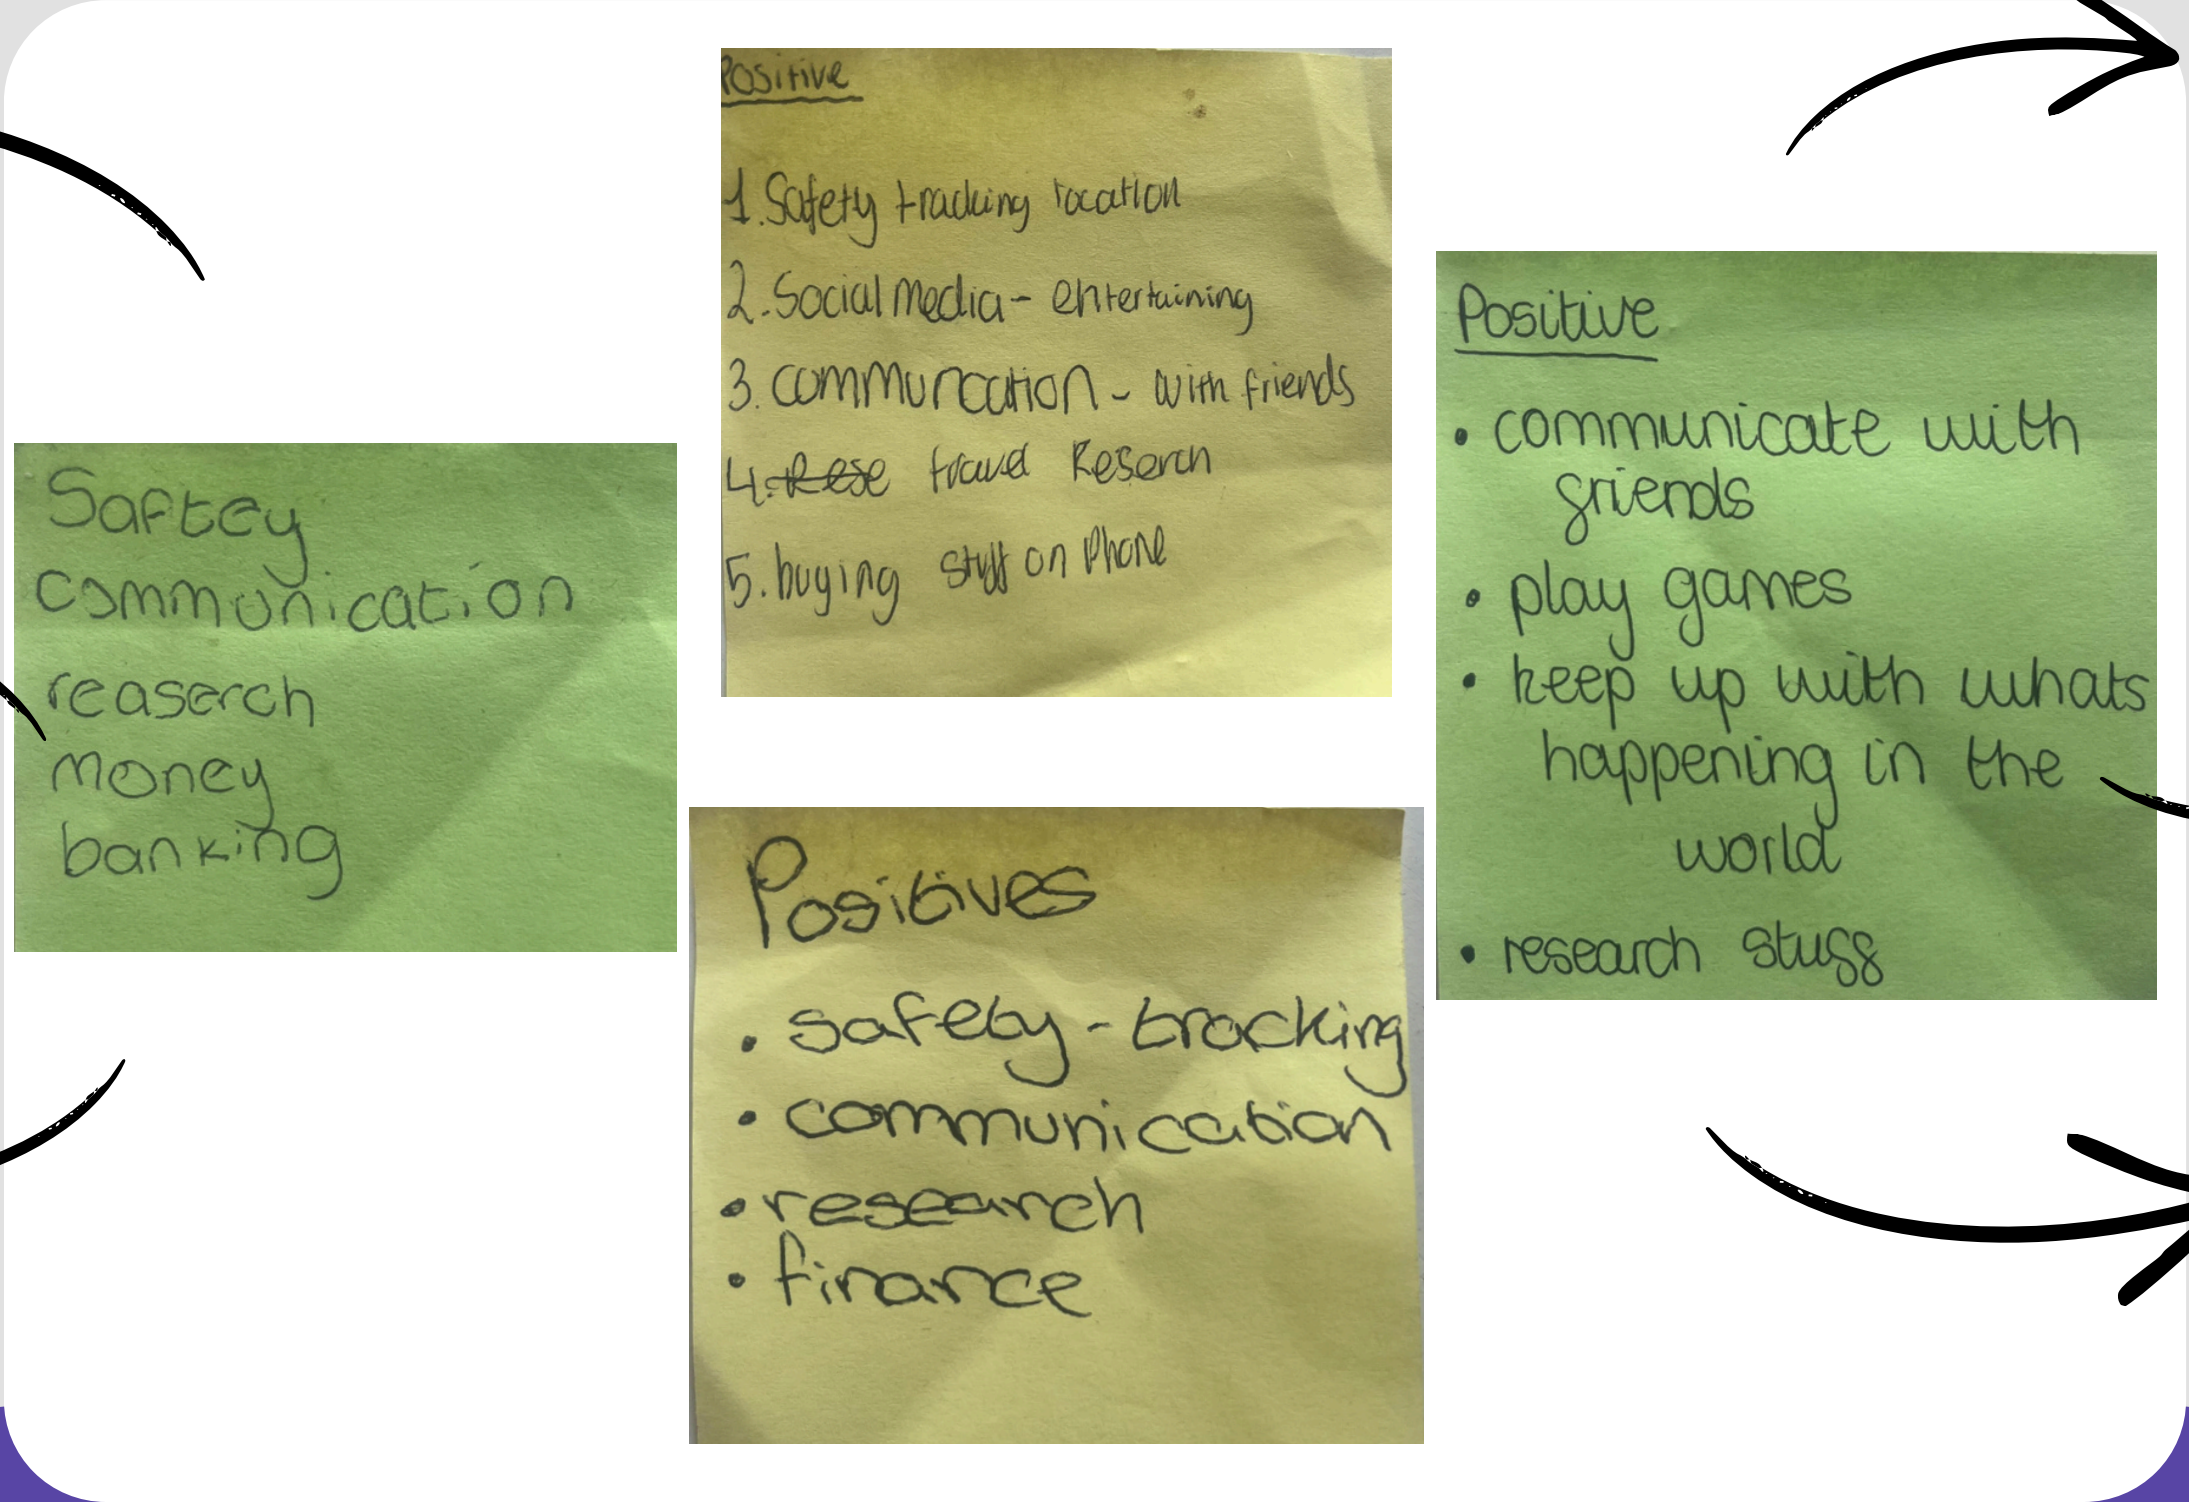 Saftey
communication
reaserch
money
banking
Positive
1. Safety tracking location
2. Social media - entertaining
3. communcation - with friends
4. Rese travel Reserch
5. buying stuff on phone
Positives
• safety - tracking
• communication
• research
• finance
Positive
• communicate with
friends
• play games
• keep up with whats
happening in the
world
• research stuff